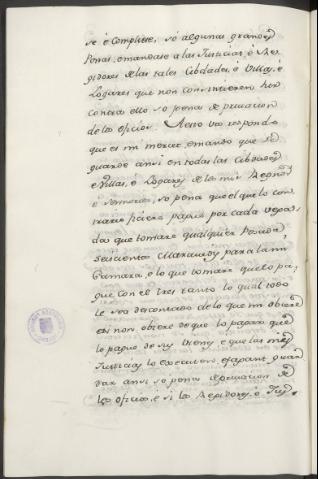 se é Complisse, só algunas grandes
Penas, emandase a las Justicias, é Re-
gidores de las tales Cibdades, é Villas, é
Logares que non Consintieren hir
contra ello so pena de privacion
de los oficios. Aesto vos respondo
que es mi merced, emando que se
guarde ansi en todas las Cibdades
é Villas, é Logares de los mis Regnos
é Sennorios, so pena que el que lo con-
trario ficiere pague por cada vega-
da que tomare qualquier Posada,
Seiscientos Maravedis para la mi
Camara, é lo que tomare que lo pa-
gue con el tres tanto lo qual todo
le sea descontado de lo que mi obiere
é si non obiere de que lo pagar que
lo pague de sus vienes é que las mis
Justicias lo executen, é fagan guar-
dar ansi so pena de privacion de
los oficios, é si los Regidores, é Jus-